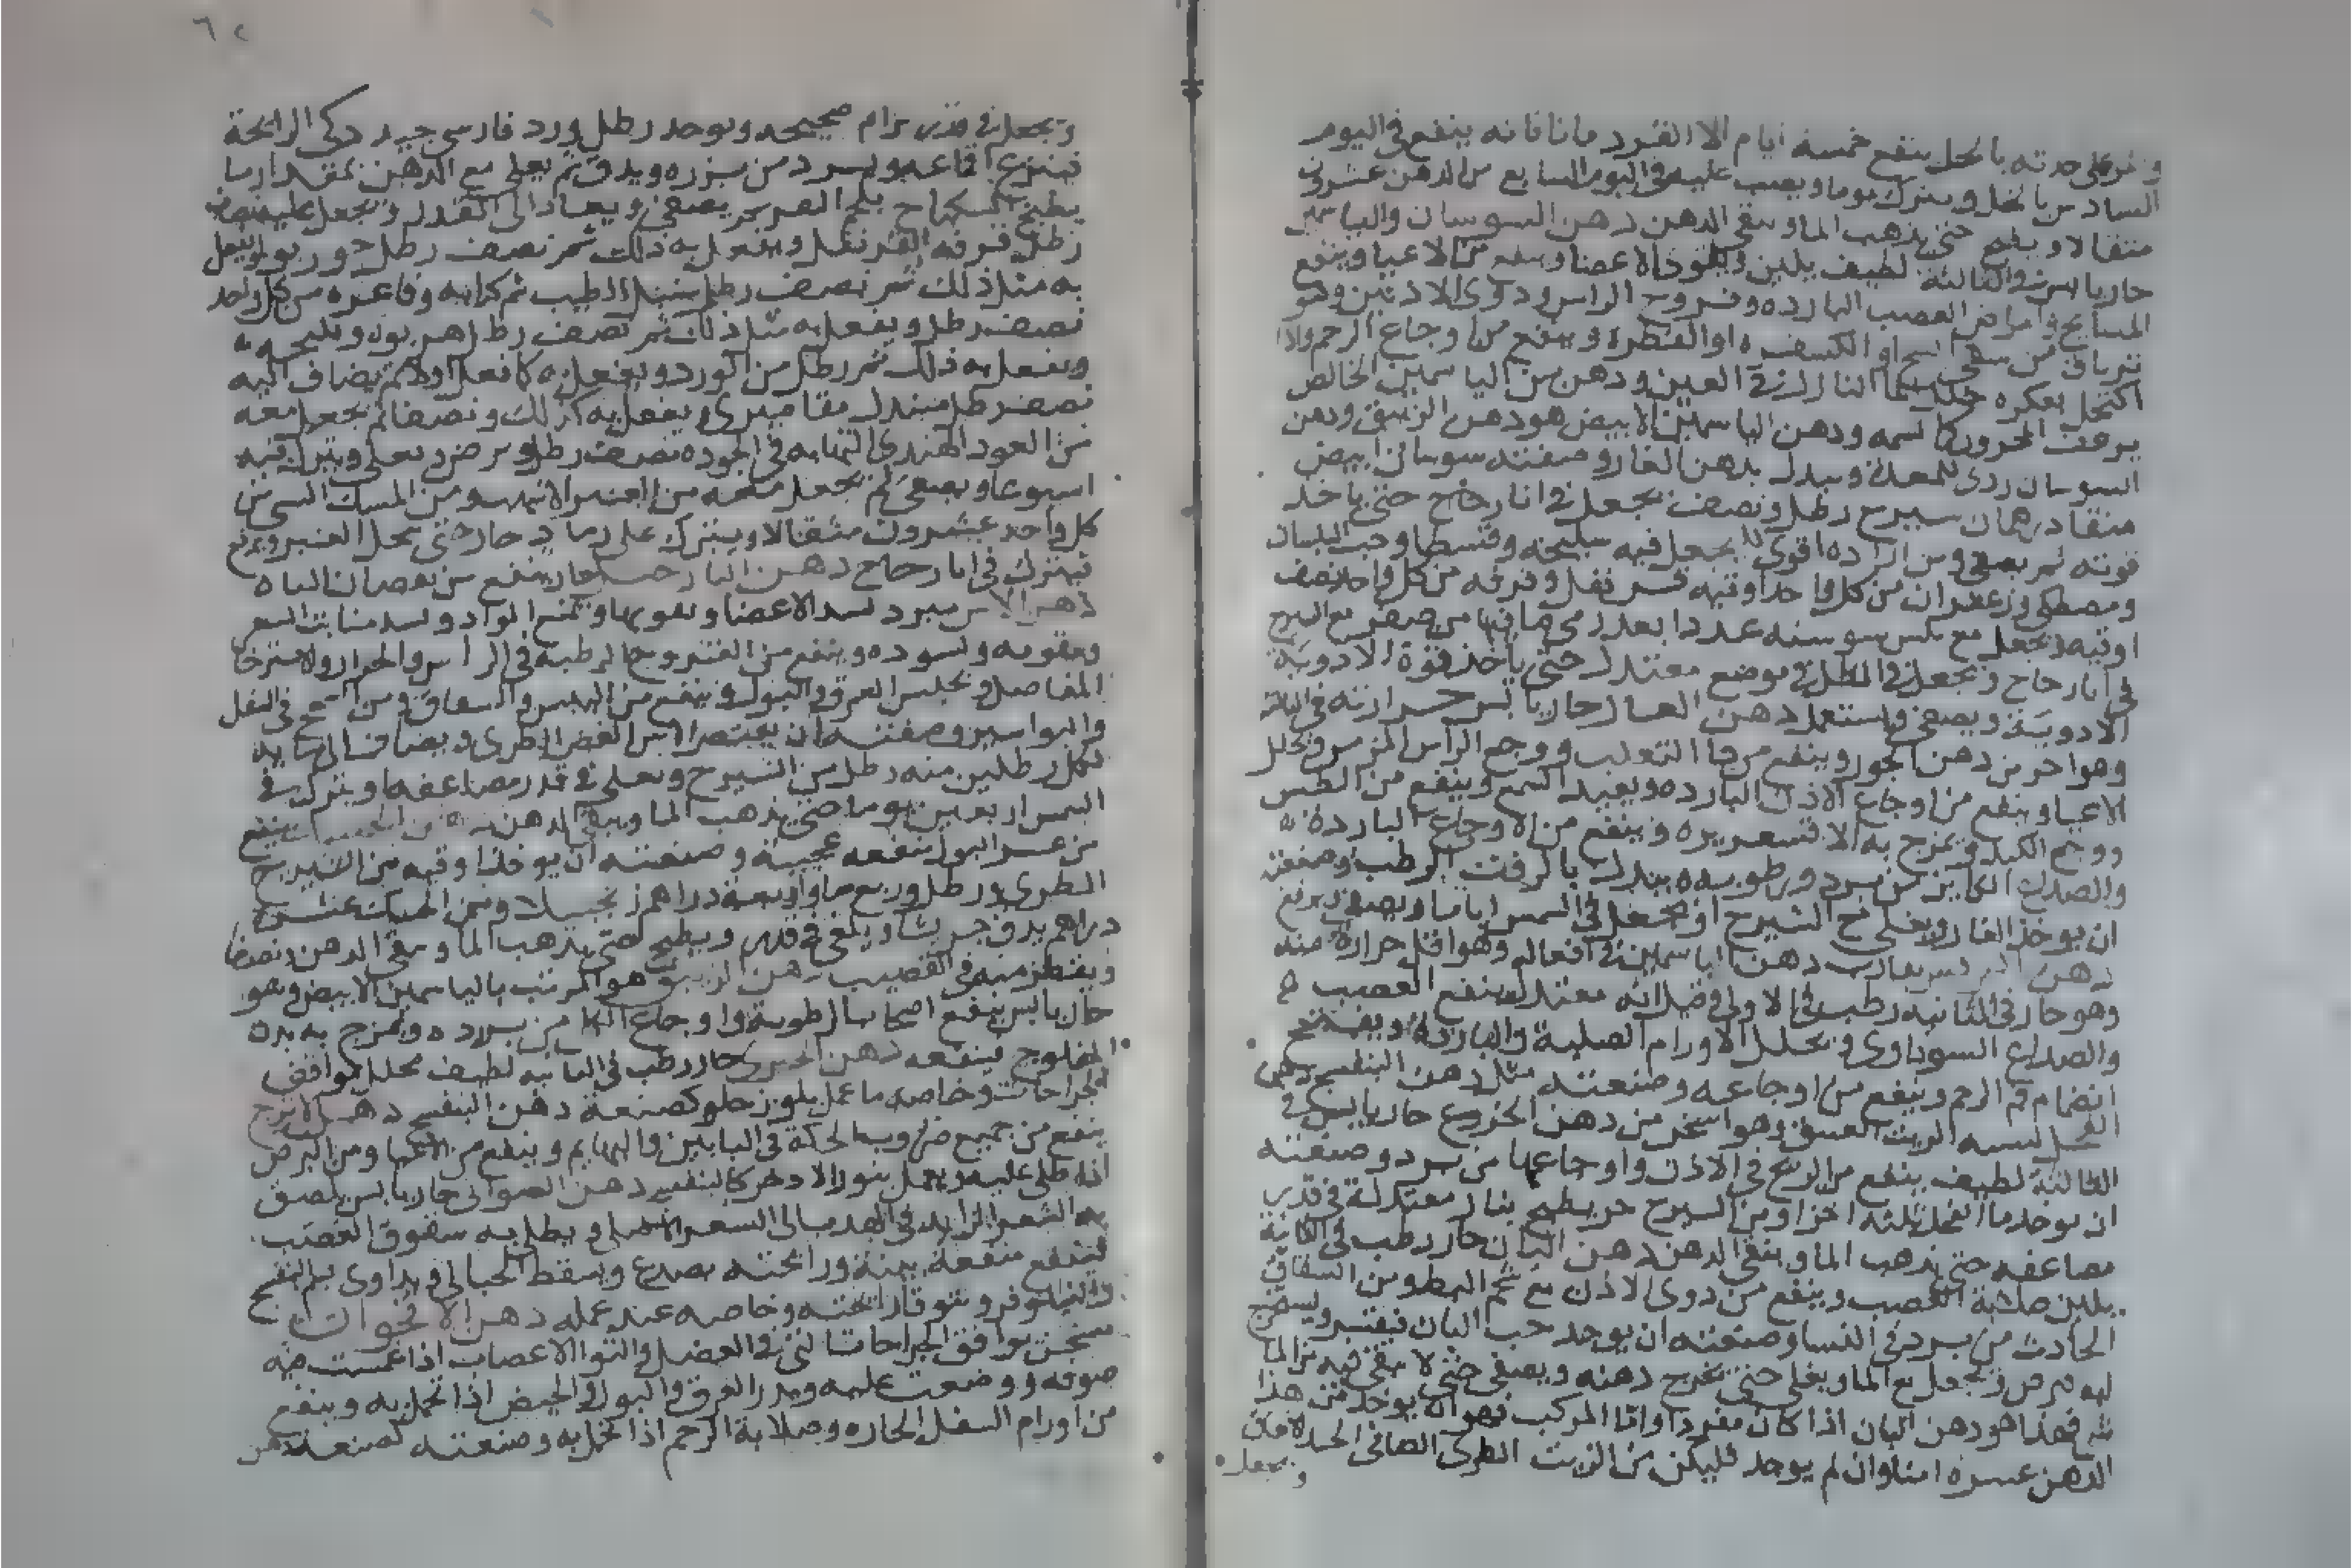 وحده بالخل ينقع خمسة ايام الا القرد مانا فانه ينقع في اليوم
السادس بالخل ويترك يوما ويصب عليه في اليوم السابع من الدهن عشرون
مثقالا ويطبخ حتى يذهب الما ويبقى الدهن دهن السوسان والياسمين
حار يابس في الثالثة لطيف يلين الاعضا وينفع من الاعيا وينفع
المسايخ وامراض العصب البارده وقروح الراس ودوي الاذنين وهو
ترياق من سقي البنج او الكسفره او الفطر وينفع من اوجاع الرحم واذا
اكتحل بعكره الما النازل في العين ودهن من الياسمين الخالص
يرعف المحرور كما اسمه ودهن الياسمين الابيض هو دهن الزيبق ودهن
السوسان ردي للمعدة ويبدل بدهن الغار وصفته سوسان ابيض
منقا درهمان سيرج رطل ونصف يجعل في انا زجاج حتى ياخذ
قوته ثم يصفى ومن اراده اقوى يجعل فيه سليخه وقسطا وحب البلسان
ومصطكى وزعفران من كل واحد اوقيه قرنفل وقرفه من كل واحد نصف
اوقيه يجعل مع سوسنه عددا بعد رمي ما فيها من صفر مع السيرج
في انا زجاج ويجعل في الظل في موضع معتدل حتى ياخذ قوة الادوية
الادوية ويصفى ويستعمل دهن الغار حار يابس حرارته في الثالثة
وهو احر من دهن الجوز وينفع من دا الثعلب ووجع الراس المزمن ويحلل
الاعيا وينفع من اوجاع الاذن البارده ويعيد السمع وينفع من الطرش
ووجع الكبد ويمزج به الاقشعريره وينفع من الاوجاع البارده
والصداع الكاين من برد ورطوبه ويبدل بالزفت الرطب وصنعته
ان يوخذ الغار ويغلى مع الشيرج او يجعل في الشمس اياما ويصفى ويرفع
دهن يقارب دهن الياسمين في افعاله وهو اقل حرارة منه
وهو حار في الثانيه رطب في الاولى وقيل انه معتدل وينفع العصب
والصداع السوداوي ويحلل الاورام الصلبة والباردة ويفتح
انضمام فم الرحم وينفع من اوجاعه وصنعته مثل دهن البنفسج دهن
الفجل يشبه الزيت العتيق وهو اسخن من دهن الخروع حار يابس في
الثالثة لطيف ينفع من الريح في الاذن واوجاعها من برد وصنعته
ان يوخذ ما الفجل ثلثه اجزا ومن السيرج جز يطبخ بنار معتدلة في قدر
مضاعفه حتى يذهب الما ويبقى الدهن دهن البان حار رطب في الثانية
يلين صلابة العصب وينفع من دوي الاذن مع شحم البط ومن الشقاق
الحادث من برد في الشتا وصنعته ان يوخذ حب البان فيقشر ويستخرج
لبه ويجعل مع الما ويغلى حتى يخرج دهنه ويصفى حتى لا يبقى فيه من الما
شي فهذا هو دهن البان اذا كان مفردا واما المركب فهو ان يوخذ من هذا
الدهن عشره امنا وان لم يوجد فليكن من الزيت الطري الصافي الجيد
ويجعل
٦٢
ويجعل في قدر برام صحيحه ويوخذ رطل ورد فارسي جيد ذكي الرايحة
فينزع اقماعه ويبرد من بزره ويدق ثم يغلى مع الدهن بمقدار ما
يطبخ السكباج بلحم البقر ثم يصفى ويعاد الى القدر ويجعل عليه نصف
رطل قرفه القرنفل ويفعل به ذلك ثم نصف رطل جوز بوا ويفعل
به مثل ذلك ثم نصف رطل سنبل الطيب ثم كبابه وفاغره من كل واحد
نصف رطل ويفعل به مثل ذلك ثم نصف رطل هرنوه وسليخه
ويفعل به ذلك ثم رطل من الورد ويفعل به كما فعل اولا ثم يضاف اليه
نصف رطل صندل مقاصيري ويفعل به كذلك ونصفا ثم يجعل معه
من العود الهندي النهايه في الجوده نصف رطل ويغلى ويترك فيه
اسبوعا ويصفى ثم يجعل معه من العنبر الاشهب ومن المسك التبتي من
كل واحد عشرون مثقالا ويترك على رماد حار حتى يحل العنبر ويرفع
فيترك في انا زجاج دهن النارجيل حار ينفع من نقصان الباه
دهن الاس يبرد يشد الاعضا ويقويها ويمنع المواد ويشد منابت الشعر
ويقويه ويسوده وينفع من القروح الرطبه في الراس والحرار والاسترخا
المفاصل ويحبس العرق والبول وينفع من اليبس والشقاق ومن السحج في السفل
والبواسير وصفته ان يعتصر الاس الغض الطري ويضاف الى مايه
لكل رطلين منه رطل من الشيرج ويغلى في قدر مضاعفه او يترك في
الشمس اربعين يوما حتى يذهب الما ويبقى الدهن دهن ينفع
من عسر البول منفعه عجيبة وصنعته ان يوخذ اوقيه من الشيرج
الطري ورطل وربع ما واربعة دراهم زنجبيلا ومن الحسك عشرة
دراهم يدق جريشا ويلقى في قدر ويطبخ حتى يذهب الما ويبقى الدهن ويصفا
ويقطر منه في القضيب دهن الزيبق هو المرتب بالياسمين الابيض وهو
حار يابس ينفع اصحاب الرطوبة واوجاع من برده ويمزج به بدن
المفلوج فينفعه دهن الخيري حار رطب في الثانيه لطيف محلل موافق
الجراحات وخاصه ما عمل بلوز حلو كصنعة دهن البنفسج دهن الاترج
ينفع من جميع ضروب الحكة في الناس والبهايم وينفع من الاعيا ومن البرص
اذا طلي عليه ويعمل بنور الاذخر كالبنفسج دهن الصوابي حار يابس يلصق
به الشعر الزايد في الهدب الى الشعر الاصلي ويطلى به شقوق العصب
فينفع منفعة بينة ورايحته تصدع ويسقط الحبالى ويداوى بالبنفسج
والنيلوفر ويتوقا رايحته وخاصه عند عمله دهن الاقحوان
سخن يوافق الجراحات التي في العضل والتوا الاعصاب اذا غمست فيه
صوفه ووضعت عليه ويدر العرق والبول والحيض اذا تحمل به وينفع
من اورام السفل الحاره وصلابة الرحم اذا تحمل به وصنعته كصنعة دهن